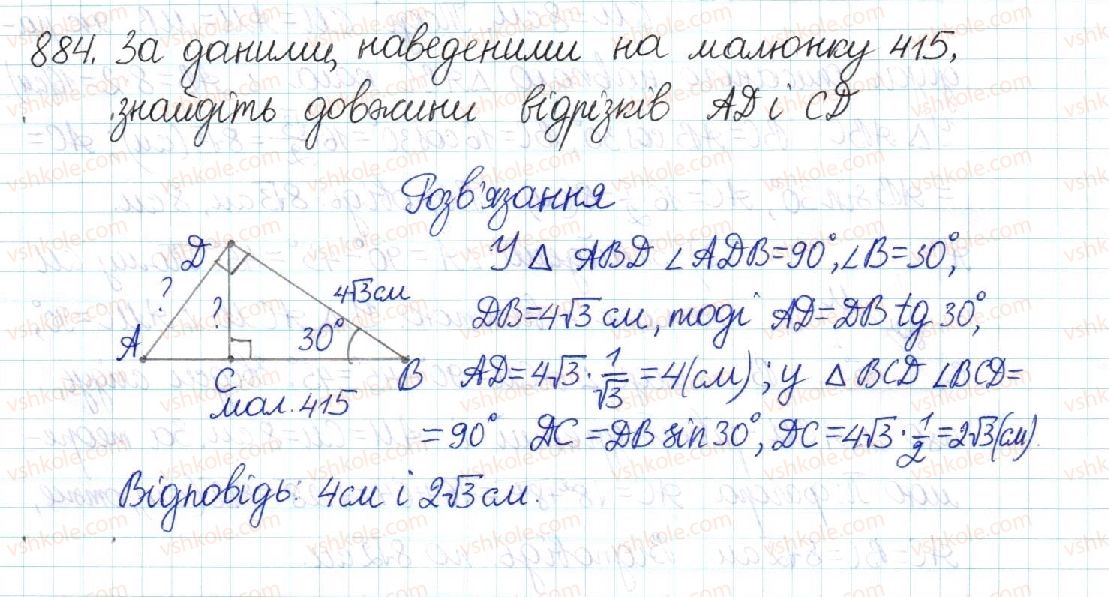 884. За даними, наведеними на малюнку 415,
знайдіть довжини відрізків AD і CD
Розв'язання
У △ ABD ∠ADB=90°, ∠B=30°,
DB=4√3 см, тоді AD=DB tg 30°,
AD=4√3·1/√3=4(см); у △ BCD ∠BCD=
=90° DC=DB sin30°, DC=4√3·1/2=2√3(см).
D
?
?
4√3см
A
30°
C
B
мал.415
Відповідь: 4см і 2√3см.
vshkole.com